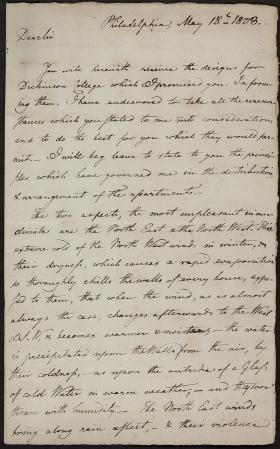 Philadelphia, May 18th 1803.
Dear Sir
You will herewith receive the designs for
Dickinson College which I promised you. In form-
ing them, I have endeavored to take all the circum-
stances which you stated to me into consideration
and to do the best for you which they would per-
mit. – I will beg leave to state to you the princi-
ples which have governed me in the distribution
& arrangement of the apartments. –
The two aspects, the most unpleasant in our
climate are the North East & the North West. The
extreme cold of the North West winds in winter, &
their dryness, which causes a rapid evaporation
so thoroughly chills the walls of every house, expo-
sed to them, that when the wind, as is almost
always the case, changes afterwards to the West
& S. W. & becomes warmer & moister, – the water
is precipitated upon the Walls from the air, by
their coldness, – as upon the outside of a Glass
of cold Water in warm weather, – and they soon
stream with humidity. – The North East winds
bring along rain & sleet, – & their violence